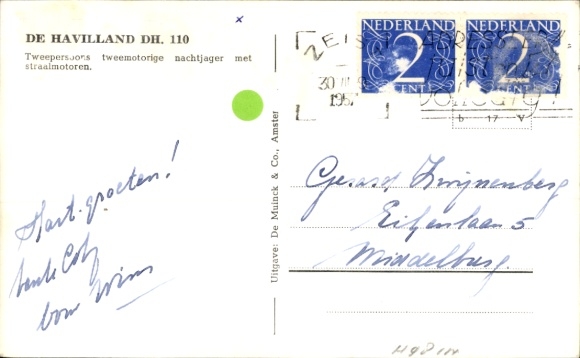 x
DE HAVILLAND DH. 110
Tweepersoons tweemotorige nachtjager met
straalmotoren.
NEDERLAND NEDERLAND
2 2
CENT CENT
ZEIST
ADRESS
30
195
volledig
b 17 V
Uitgave: De Muinck & Co., Amster
Hart. groeten!
tante Coby
oom Wim
Gerard Zwijnenberg
laan 5
Middelburg.